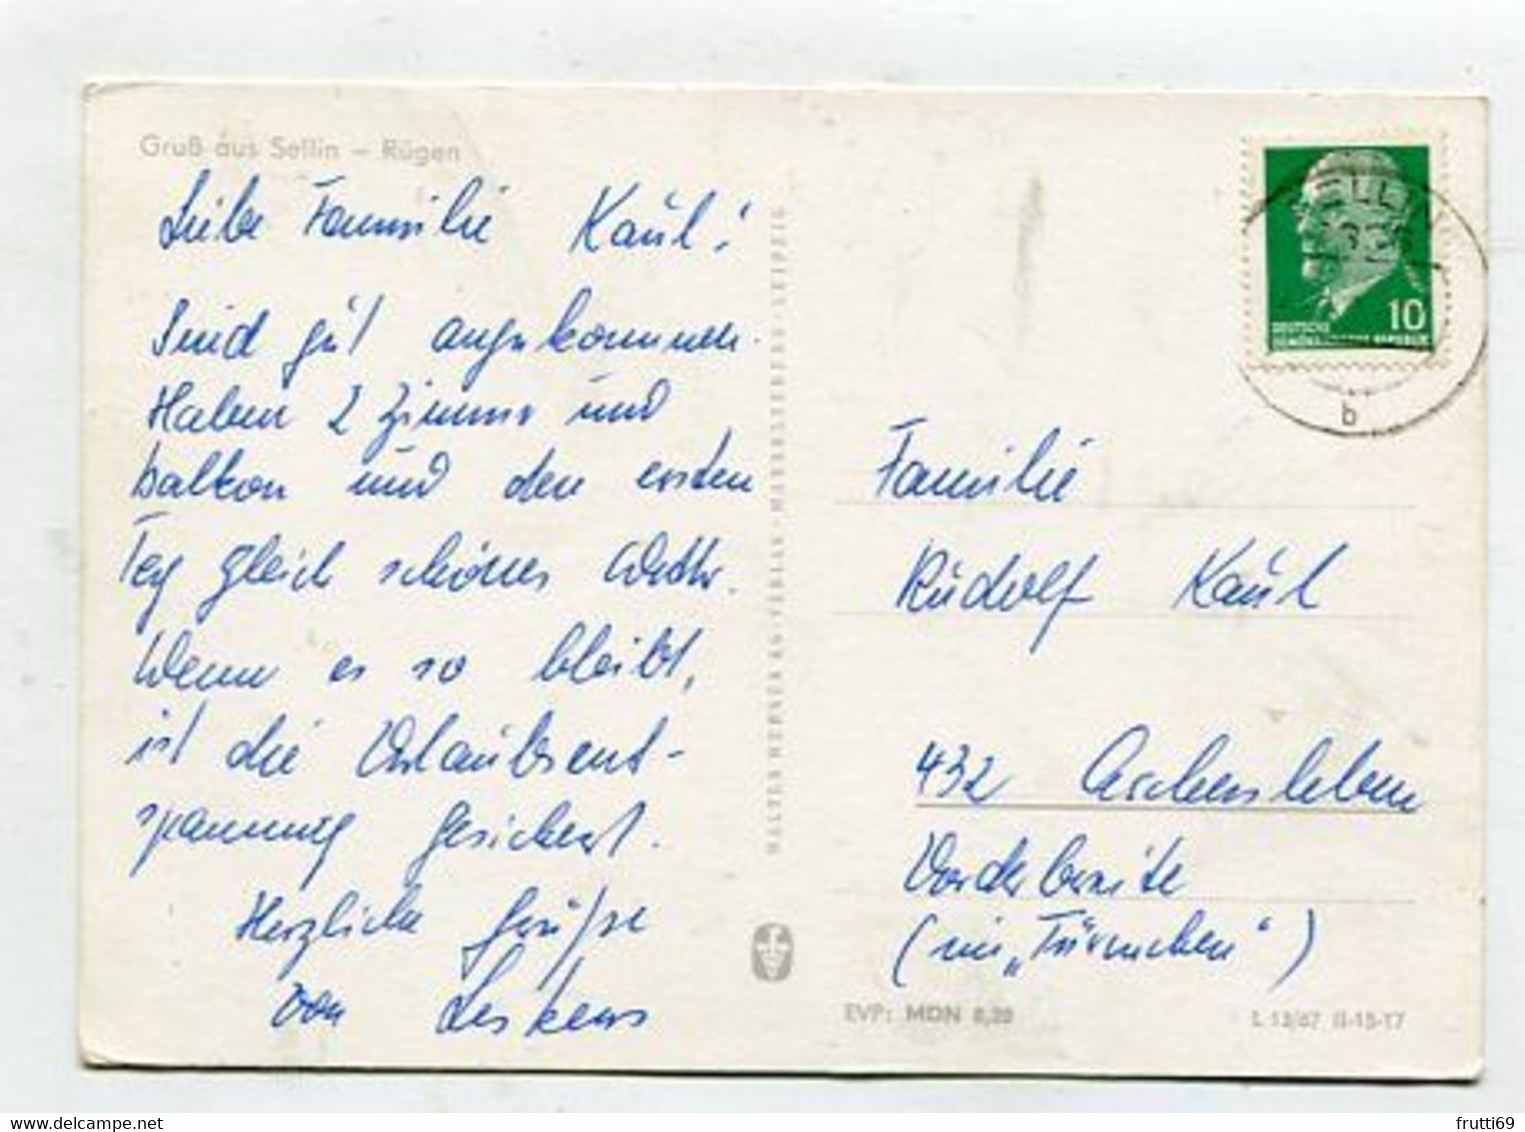 Gruß aus Sellin – Rügen
Liebe Familie Kaul!
Sind gut angekommen.
Haben 2 Zimmer und
Balkon und den ersten
Tag gleich schönes Wetter.
Wenn es so bleibt,
ist die Urlaubsent-
spannung gesichert.
Herzliche Grüße
von
WALTER HERZOG KG VERLAG · MARKKLEEBERG · LEIPZIG
10
DEUTSCHE
b
Familie
Rudolf Kaul
432 Aschersleben
Vorderbreite
(im „Türmchen“)
EVP: MDN 0,20
L 13/67 II-15-17
frutti69